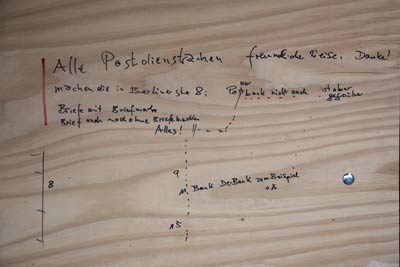 Alle Postdienstsachen freundliche Weise. Danke!
machen die in Berliner str 8; Postbank nicht auch ist aber
nur
gegenüber
Briefe mit Briefmarke
Brief auch noch ohne Briefmarken
Alles! !!
8
9
11 Bank De-Bank zum Beispiel
o.k
15